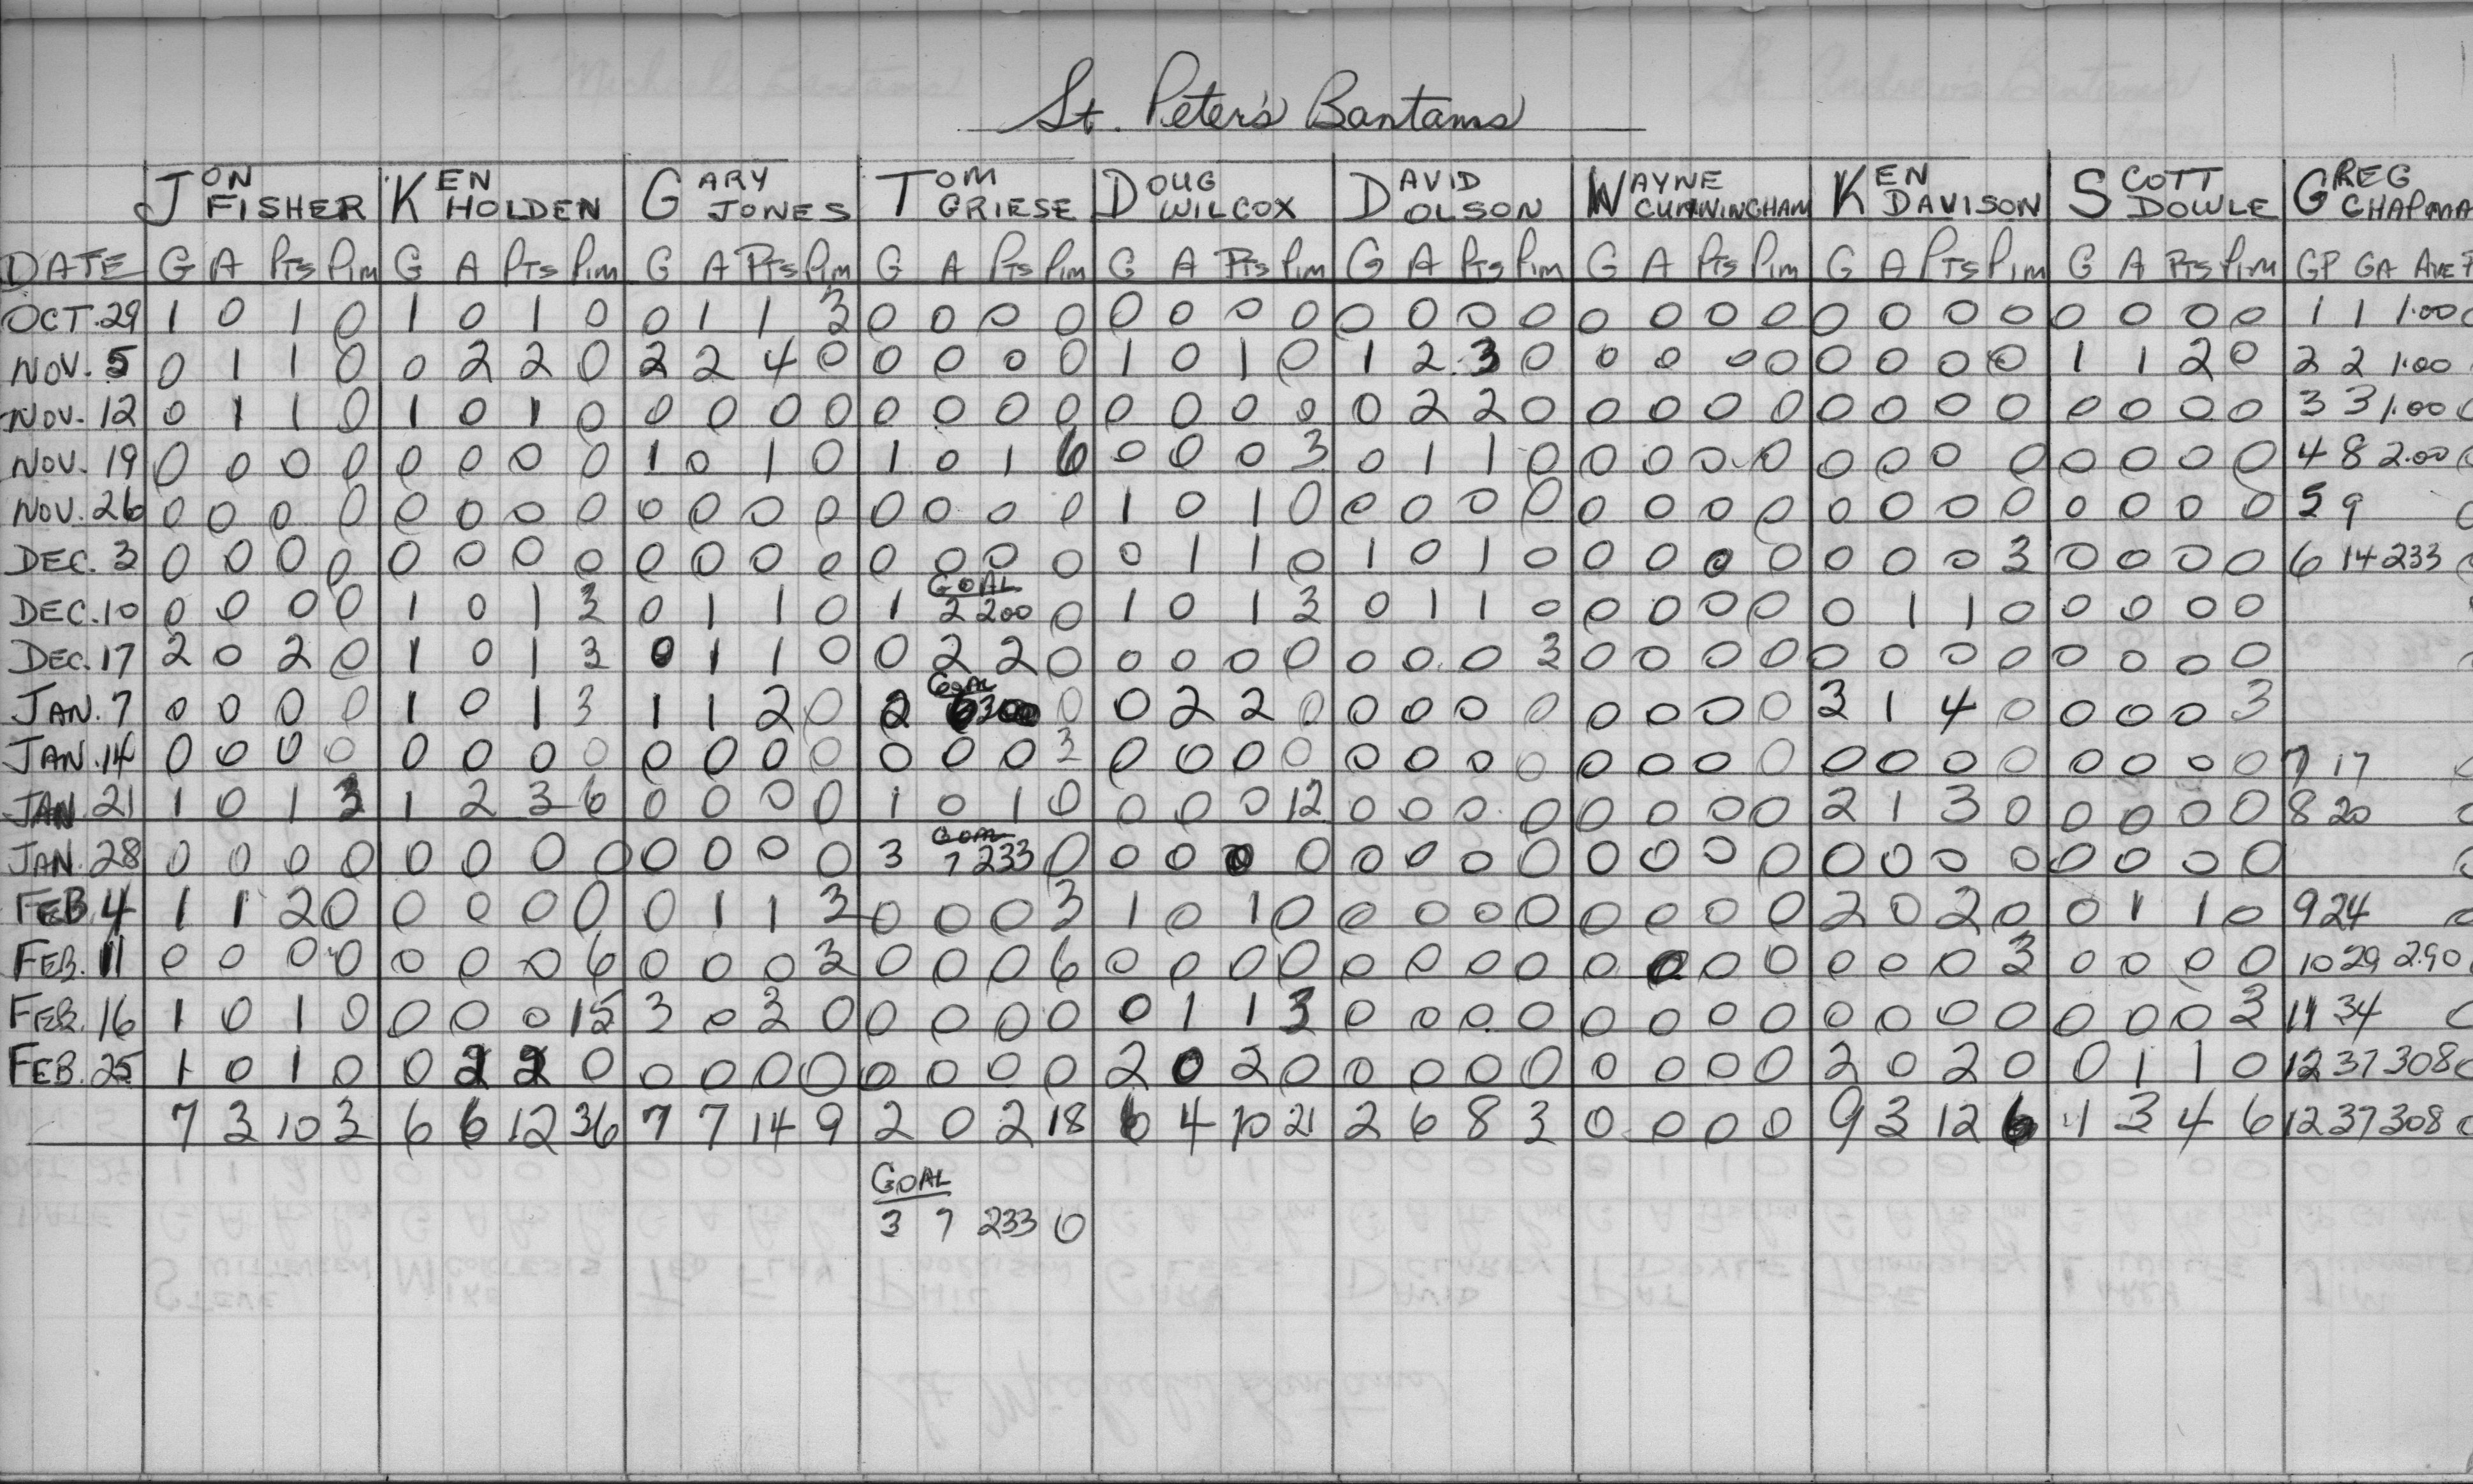 St. Peter's Bantams
JON FISHER KEN HOLDEN GARY JONES TOM GRIESE DOUG WILCOX DAVID OLSON WAYNE CUNNINGHAM KEN DAVISON SCOTT DOWLE GREG CHAPMA
DATE G A Pts Pim G A Pts Pim G A Pts Pim G A Pts Pim G A Pts Pim G A Pts Pim G A Pts Pim G A Pts Pim G A Pts Pim GP GA AVE P
OCT. 29 1 0 1 0 1 0 1 0 0 1 1 3 0 0 0 0 0 0 0 0 0 0 0 0 0 0 0 0 0 0 0 0 0 0 0 0 1 1 1.00 0
NOV. 5 0 1 1 0 0 2 2 0 2 2 4 0 0 0 0 0 1 0 1 0 1 2 3 0 0 0 0 0 0 0 0 0 1 1 2 0 2 2 1.00
NOV. 12 0 1 1 0 1 0 1 0 0 0 0 0 0 0 0 0 0 0 0 0 0 2 2 0 0 0 0 0 0 0 0 0 0 0 0 0 3 3 1.00 0
NOV. 19 0 0 0 0 0 0 0 0 1 0 1 0 1 0 1 6 0 0 0 3 0 1 1 0 0 0 0 0 0 0 0 0 0 0 0 0 4 8 2.00 0
NOV. 26 0 0 0 0 0 0 0 0 0 0 0 0 0 0 0 0 1 0 1 0 0 0 0 0 0 0 0 0 0 0 0 0 0 0 0 0 5 9 0
DEC. 3 0 0 0 0 0 0 0 0 0 0 0 0 0 0 0 0 0 1 1 0 1 0 1 0 0 0 0 0 0 0 0 3 0 0 0 0 6 14 233 0
GOAL
DEC. 10 0 0 0 0 1 0 1 3 0 1 1 0 1 2 200 0 1 0 1 3 0 1 1 0 0 0 0 0 0 1 1 0 0 0 0 0
DEC. 17 2 0 2 0 1 0 1 3 0 1 1 0 0 2 2 0 0 0 0 0 0 0 0 3 0 0 0 0 0 0 0 0 0 0 0 0
GOAL
JAN. 7 0 0 0 0 1 0 1 3 1 1 2 0 2 0 0 2 2 0 0 0 0 0 0 0 0 0 3 1 4 0 0 0 0 3
JAN. 14 0 0 0 0 0 0 0 0 0 0 0 0 0 0 0 3 0 0 0 0 0 0 0 0 0 0 0 0 0 0 0 0 0 0 0 0 7 17
JAN 21 1 0 1 3 1 2 3 6 0 0 0 0 1 0 1 0 0 0 0 12 0 0 0 0 0 0 0 0 2 1 3 0 0 0 0 0 8 20 0
GOAL
JAN. 28 0 0 0 0 0 0 0 0 0 0 0 0 3 7 233 0 0 0 0 0 0 0 0 0 0 0 0 0 0 0 0 0 0 0 0 0
FEB 4 1 1 2 0 0 0 0 0 0 1 1 3 0 0 0 3 1 0 1 0 0 0 0 0 0 0 0 0 2 0 2 0 0 1 1 0 9 24 0
FEB. 11 0 0 0 0 0 0 0 6 0 0 0 3 0 0 0 6 0 0 0 0 0 0 0 0 0 0 0 0 0 0 0 3 0 0 0 0 10 29 2.90
FEB. 16 1 0 1 0 0 0 0 15 3 0 3 0 0 0 0 0 0 1 1 3 0 0 0 0 0 0 0 0 0 0 0 0 0 0 0 3 11 34 0
FEB. 25 1 0 1 0 0 2 2 0 0 0 0 0 0 0 0 0 2 0 2 0 0 0 0 0 0 0 0 0 2 0 2 0 0 1 1 0 12 37 308 0
7 3 10 3 6 6 12 36 7 7 14 9 2 0 2 18 6 4 10 21 2 6 8 3 0 0 0 0 9 3 12 6 1 3 4 6 12 37 308 0
GOAL
3 7 233 0